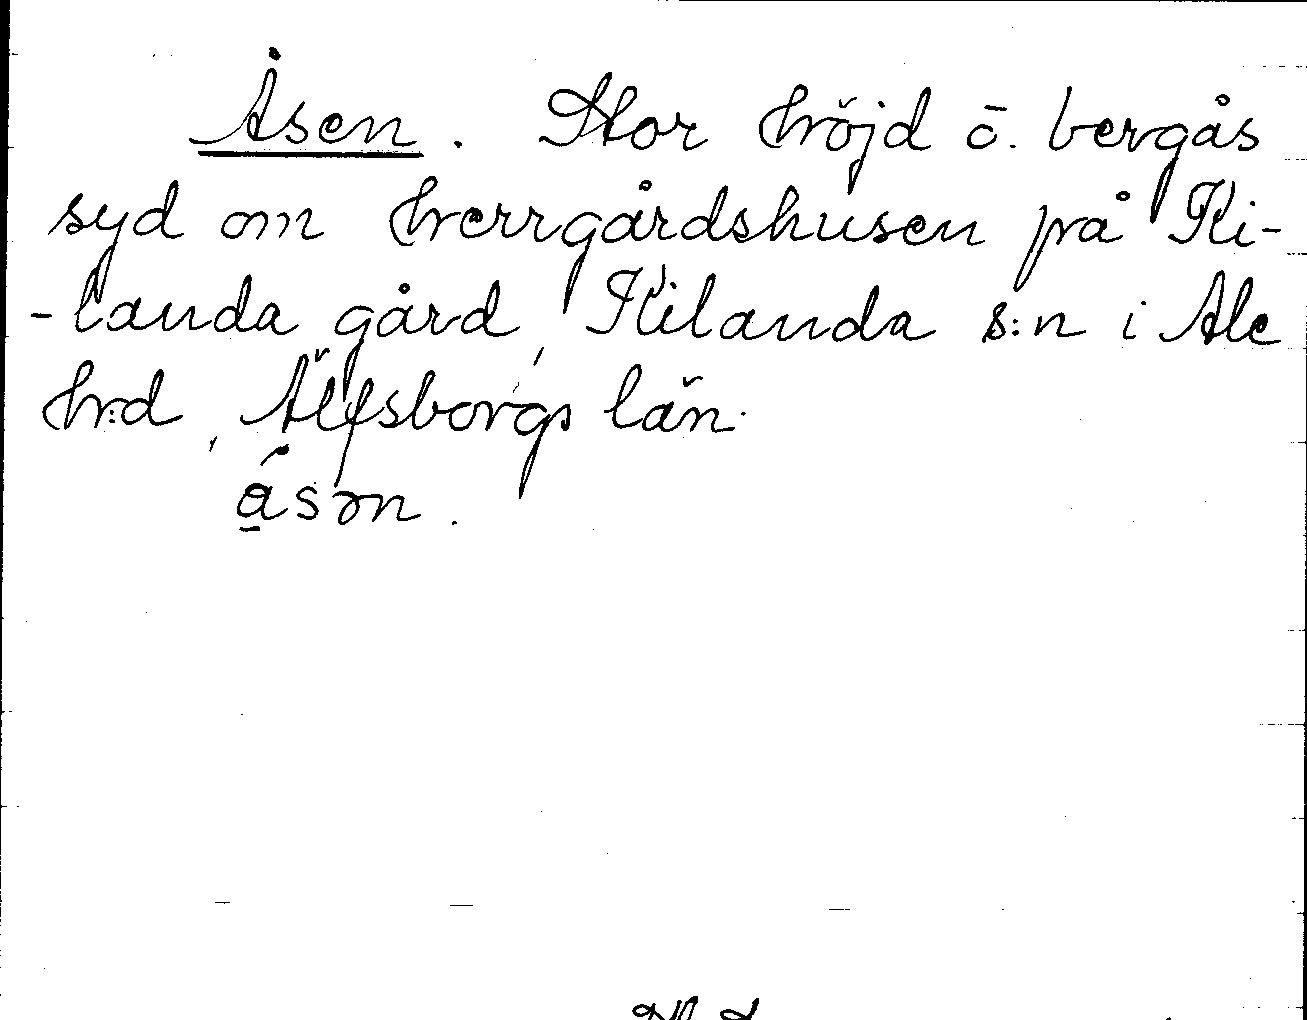 Åsen. Stor höjd ō. bergås
syd om herrgårdshusen på Ki-
-landa gård, Kilanda s:n i Ale
h:d, Älfsborgs län.
ǻ̱sən.